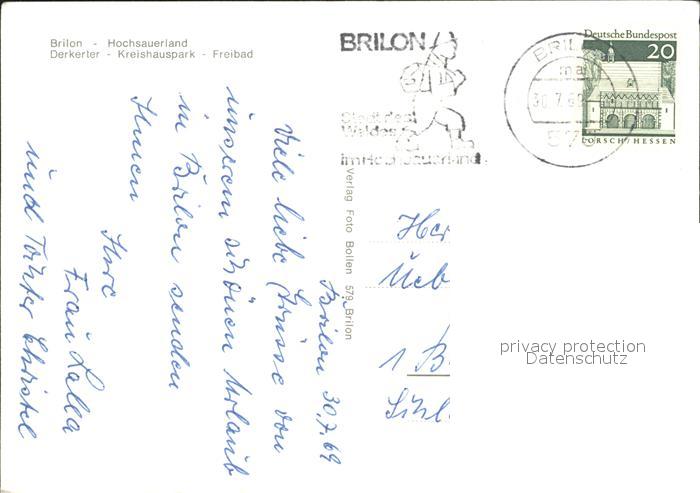 Brilon - Hochsauerland
Derkerter - Kreishauspark - Freibad
BRILON
Stadt des
Waldes
im Hochsauerland
BRILON
ma
30.7.69
579
Deutsche Bundespost
20
LORSCH/HESSEN
Verlag Foto Bollen 579 Brilon
Brilon 30.7.69
Viele liebe Grüsse von
unserem schönen Urlaub
in Brilon senden
Ihnen
Ihre
Frau
und Tochter Christel
Her
Ueb
1 B
privacy protection
Datenschutz